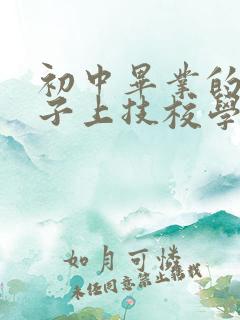 初中畢業的
子上技校學
如月可憐
未经同意禁止搬载